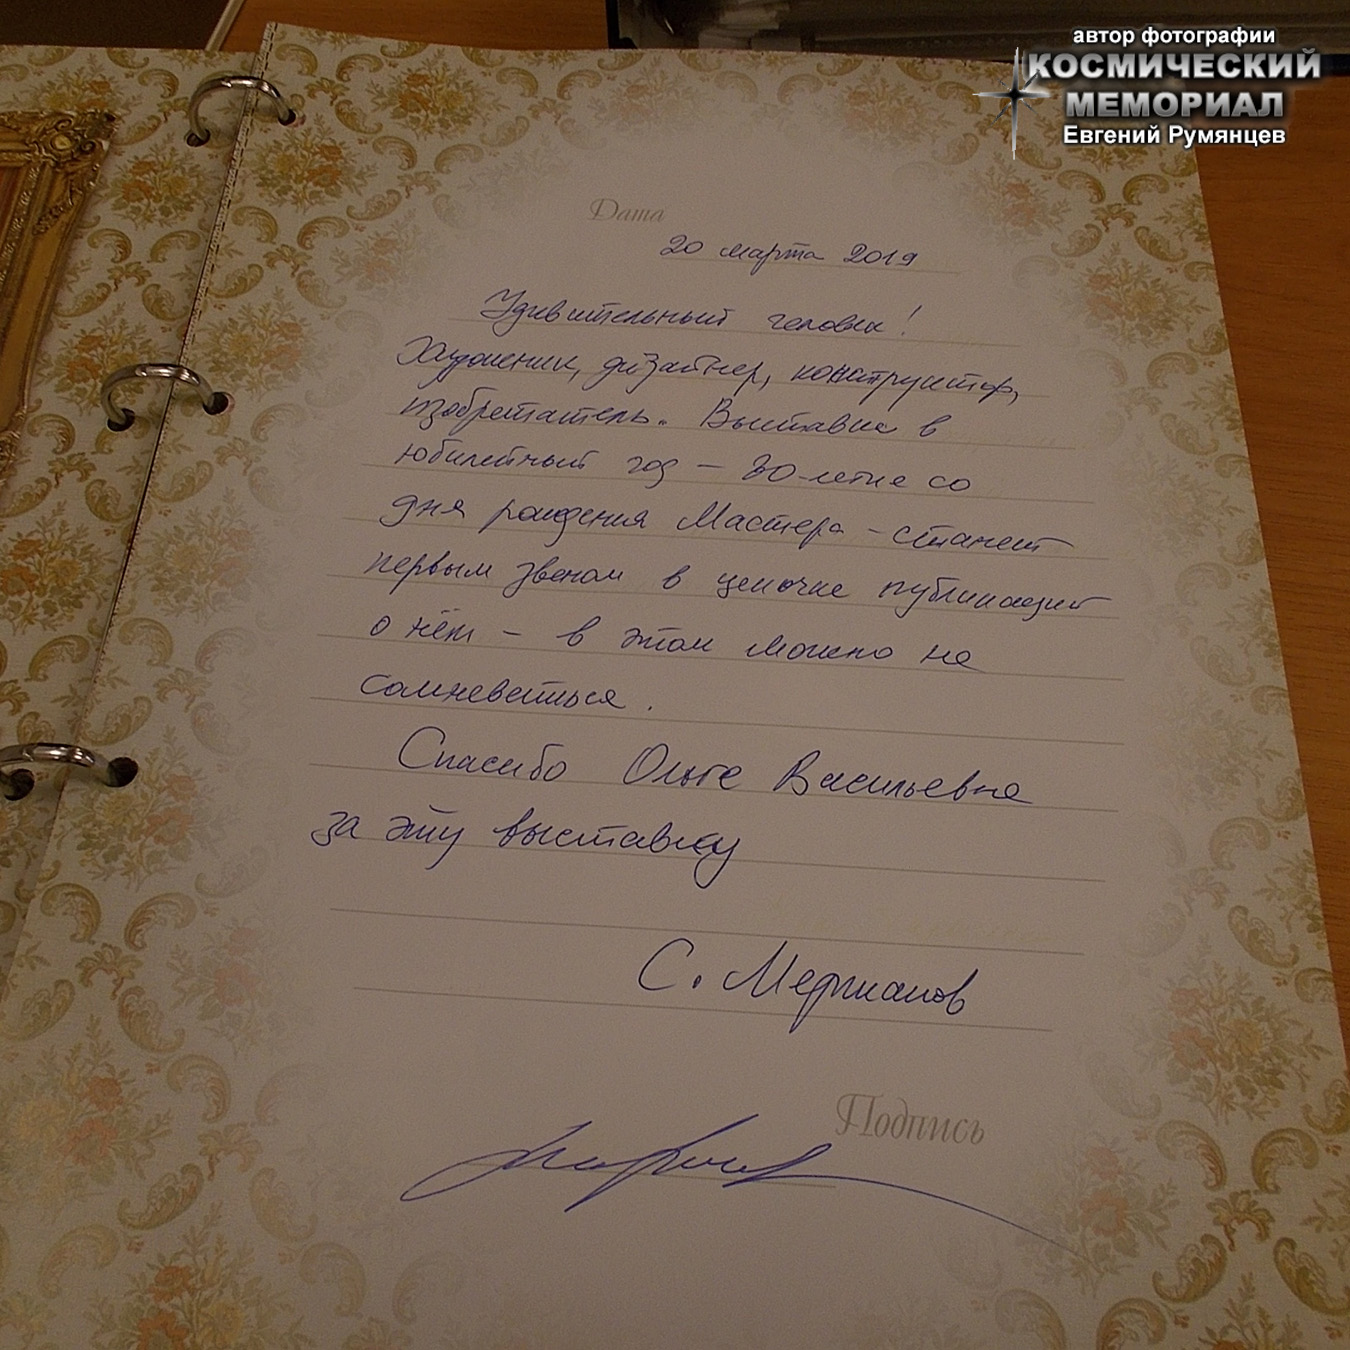 автор фотографии
КОСМИЧЕСКИЙ
МЕМОРИАЛ
Евгений Румянцев
Дата
20 марта 2019
Удивительный человек!
Художник, дизайнер, конструктор,
изобретатель. Выставка в
юбилейный год – 80-летие со
дня рождения Мастера – станет
первым звеном в цепочке публикаций
о нём – в этом можно не
сомневаться.
Спасибо Ольге Васильевне
за эту выставку
С. Мержанов
Подпись